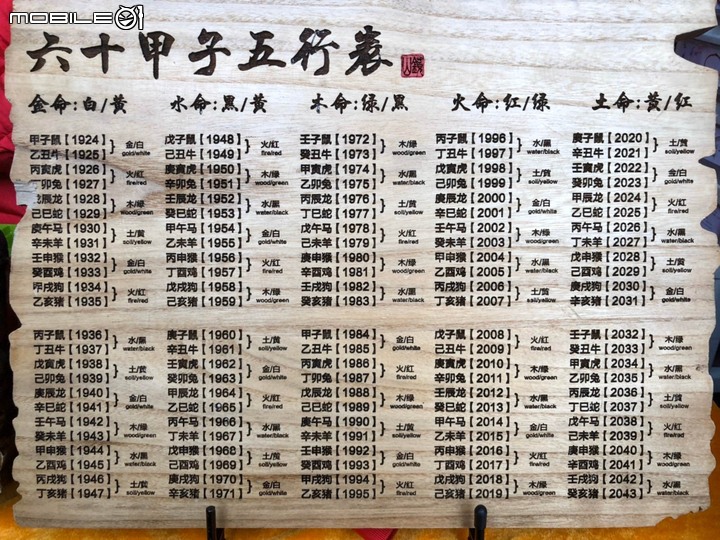 MOBILE01
六十甲子五行表
金命:白/黄 水命:黑/黄 木命:绿/黑 火命:红/绿 土命:黄/红
甲子鼠【1924】
乙丑牛【1925】
金/白
gold/white
丙寅虎【1926】
丁卯兔【1927】
火/红
fire/red
戊辰龙【1928】
己巳蛇【1929】
木/绿
wood/green
庚午马【1930】
辛未羊【1931】
土/黄
soil/yellow
壬申猴【1932】
癸酉鸡【1933】
金/白
gold/white
甲戌狗【1934】
乙亥猪【1935】
火/红
fire/red
戊子鼠【1948】
己丑牛【1949】
火/红
fire/red
庚寅虎【1950】
辛卯兔【1951】
木/绿
wood/green
壬辰龙【1952】
癸巳蛇【1953】
水/黑
water/black
甲午马【1954】
乙未羊【1955】
金/白
gold/white
丙申猴【1956】
丁酉鸡【1957】
火/红
fire/red
戊戌狗【1958】
己亥猪【1959】
木/绿
wood/green
壬子鼠【1972】
癸丑牛【1973】
木/绿
wood/green
甲寅虎【1974】
乙卯兔【1975】
水/黑
water/black
丙辰龙【1976】
丁巳蛇【1977】
土/黄
soil/yellow
戊午马【1978】
己未羊【1979】
火/红
fire/red
庚申猴【1980】
辛酉鸡【1981】
木/绿
wood/green
壬戌狗【1982】
癸亥猪【1983】
水/黑
water/black
丙子鼠【1996】
丁丑牛【1997】
水/黑
water/black
戊寅虎【1998】
己卯兔【1999】
土/黄
soil/yellow
庚辰龙【2000】
辛巳蛇【2001】
金/白
gold/white
壬午马【2002】
癸未羊【2003】
木/绿
wood/green
甲申猴【2004】
乙酉鸡【2005】
水/黑
water/black
丙戌狗【2006】
丁亥猪【2007】
土/黄
soil/yellow
庚子鼠【2020】
辛丑牛【2021】
土/黄
soil/yellow
壬寅虎【2022】
癸卯兔【2023】
金/白
gold/white
甲辰龙【2024】
乙巳蛇【2025】
火/红
fire/red
丙午马【2026】
丁未羊【2027】
水/黑
water/black
戊申猴【2028】
己酉鸡【2029】
土/黄
soil/yellow
庚戌狗【2030】
辛亥猪【2031】
金/白
gold/white
丙子鼠【1936】
丁丑牛【1937】
水/黑
water/black
戊寅虎【1938】
己卯兔【1939】
土/黄
soil/yellow
庚辰龙【1940】
辛巳蛇【1941】
金/白
gold/white
壬午马【1942】
癸未羊【1943】
木/绿
wood/green
甲申猴【1944】
乙酉鸡【1945】
水/黑
water/black
丙戌狗【1946】
丁亥猪【1947】
土/黄
soil/yellow
庚子鼠【1960】
辛丑牛【1961】
土/黄
soil/yellow
壬寅虎【1962】
癸卯兔【1963】
金/白
gold/white
甲辰龙【1964】
乙巳蛇【1965】
火/红
fire/red
丙午马【1966】
丁未羊【1967】
水/黑
water/black
戊申猴【1968】
己酉鸡【1969】
土/黄
soil/yellow
庚戌狗【1970】
辛亥猪【1971】
金/白
gold/white
甲子鼠【1984】
乙丑牛【1985】
金/白
gold/white
丙寅虎【1986】
丁卯兔【1987】
火/红
fire/red
戊辰龙【1988】
己巳蛇【1989】
木/绿
wood/green
庚午马【1990】
辛未羊【1991】
土/黄
soil/yellow
壬申猴【1992】
癸酉鸡【1993】
金/白
gold/white
甲戌狗【1994】
乙亥猪【1995】
火/红
fire/red
戊子鼠【2008】
己丑牛【2009】
火/红
fire/red
庚寅虎【2010】
辛卯兔【2011】
木/绿
wood/green
壬辰龙【2012】
癸巳蛇【2013】
水/黑
water/black
甲午马【2014】
乙未羊【2015】
金/白
gold/white
丙申猴【2016】
丁酉鸡【2017】
火/红
fire/red
戊戌狗【2018】
己亥猪【2019】
木/绿
wood/green
壬子鼠【2032】
癸丑牛【2033】
木/绿
wood/green
甲寅虎【2034】
乙卯兔【2035】
水/黑
water/black
丙辰龙【2036】
丁巳蛇【2037】
土/黄
soil/yellow
戊午马【2038】
己未羊【2039】
火/红
fire/red
庚申猴【2040】
辛酉鸡【2041】
木/绿
wood/green
壬戌狗【2042】
癸亥猪【2043】
水/黑
water/black